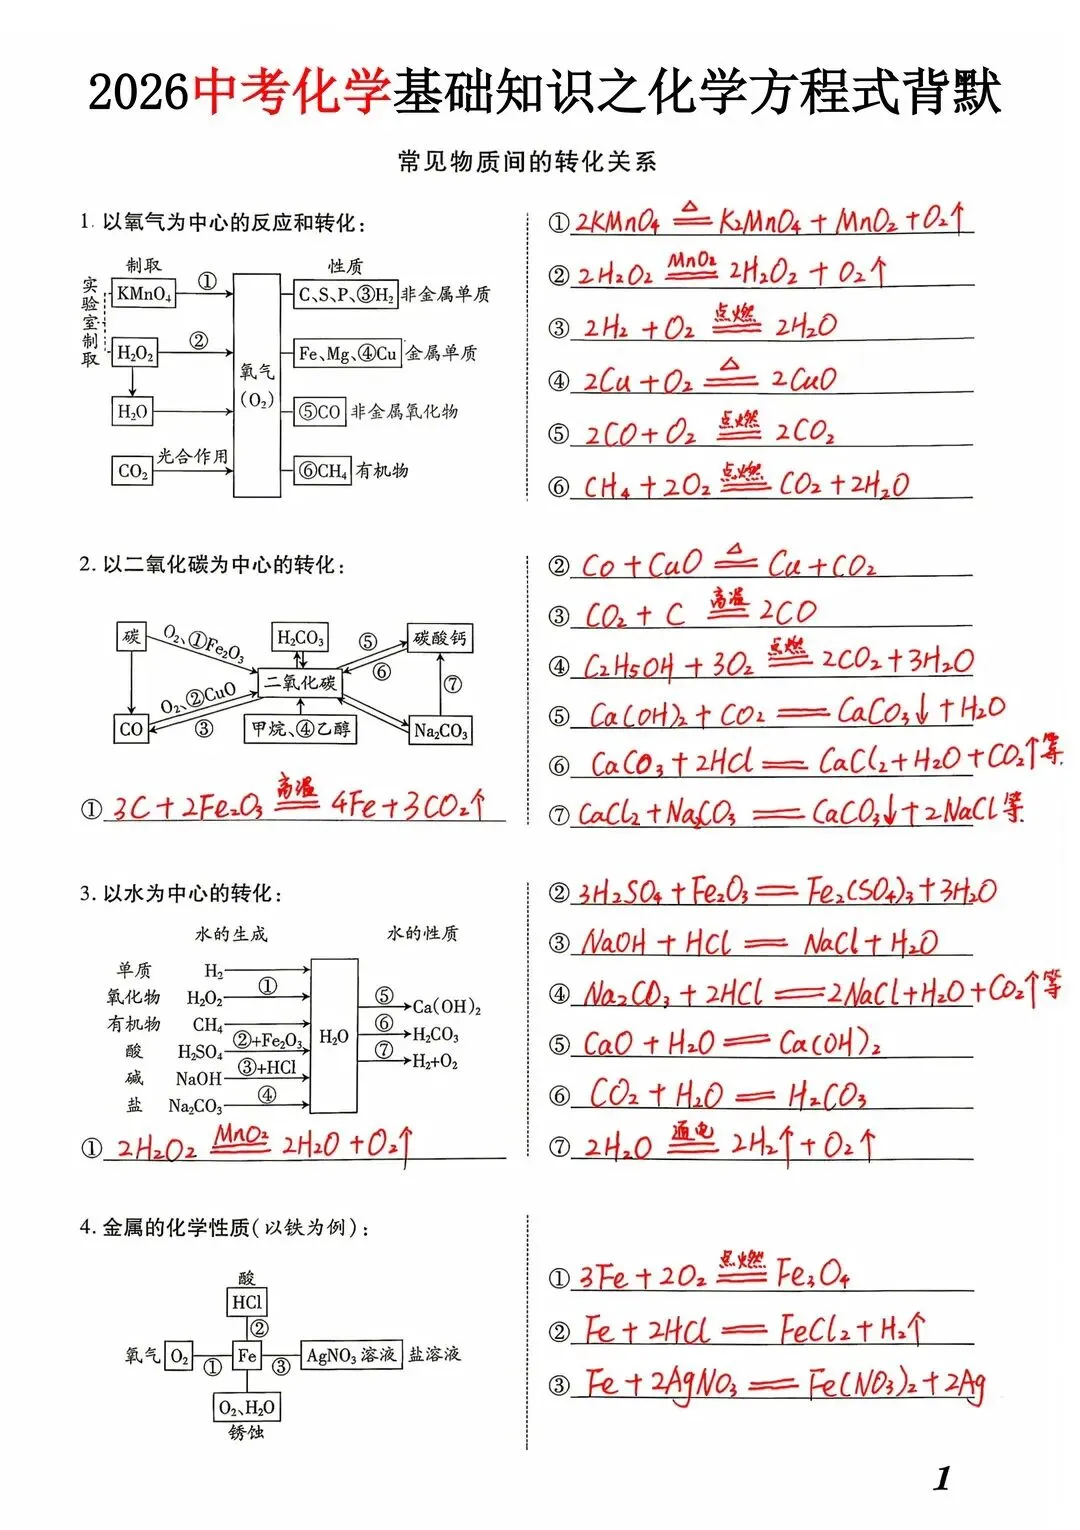 2026中考化学基础知识之化学方程式背默
常见物质间的转化关系
1. 以氧气为中心的反应和转化:
制取
性质
实验室制取
KMnO₄
①
C、S、P、③H₂
非金属单质
H₂O₂
②
Fe、Mg、④Cu
金属单质
氧气
(O₂)
H₂O
⑤CO
非金属氧化物
CO₂
光合作用
⑥CH₄
有机物
① 2KMnO₄ △ K₂MnO₄ + MnO₂ + O₂↑
② 2H₂O₂ MnO₂ 2H₂O₂ + O₂↑
③ 2H₂ + O₂ 点燃 2H₂O
④ 2Cu + O₂ △ 2CuO
⑤ 2CO + O₂ 点燃 2CO₂
⑥ CH₄ + 2O₂ 点燃 CO₂ + 2H₂O
2. 以二氧化碳为中心的转化:
碳
O₂、①Fe₂O₃
H₂CO₃
⑤
碳酸钙
⑥
二氧化碳
⑦
O₂、②CuO
CO
③
甲烷、④乙醇
Na₂CO₃
① 3C + 2Fe₂O₃ 高温 4Fe + 3CO₂↑
② Co + CuO △ Cu + CO₂
③ CO₂ + C 高温 2CO
④ C₂H₅OH + 3O₂ 点燃 2CO₂ + 3H₂O
⑤ Ca(OH)₂ + CO₂ == CaCO₃↓ + H₂O
⑥ CaCO₃ + 2HCl == CaCl₂ + H₂O + CO₂↑等
⑦ CaCl₂ + Na₂CO₃ == CaCO₃↓ + 2NaCl等
3. 以水为中心的转化:
水的生成
水的性质
单质 H₂
氧化物 H₂O₂ ①
有机物 CH₄
酸 H₂SO₄ ②+Fe₂O₃
碱 NaOH ③+HCl
盐 Na₂CO₃ ④
H₂O
⑤ Ca(OH)₂
⑥ H₂CO₃
⑦ H₂+O₂
① 2H₂O₂ MnO₂ 2H₂O + O₂↑
② 3H₂SO₄ + Fe₂O₃ == Fe₂(SO₄)₃ + 3H₂O
③ NaOH + HCl == NaCl + H₂O
④ Na₂CO₃ + 2HCl == 2NaCl + H₂O + CO₂↑等
⑤ CaO + H₂O == Ca(OH)₂
⑥ CO₂ + H₂O == H₂CO₃
⑦ 2H₂O 通电 2H₂↑ + O₂↑
4. 金属的化学性质(以铁为例):
酸
HCl
②
氧气 O₂ ① Fe ③ AgNO₃溶液 盐溶液
O₂、H₂O
锈蚀
① 3Fe + 2O₂ 点燃 Fe₃O₄
② Fe + 2HCl == FeCl₂ + H₂↑
③ Fe + 2AgNO₃ == Fe(NO₃)₂ + 2Ag
1